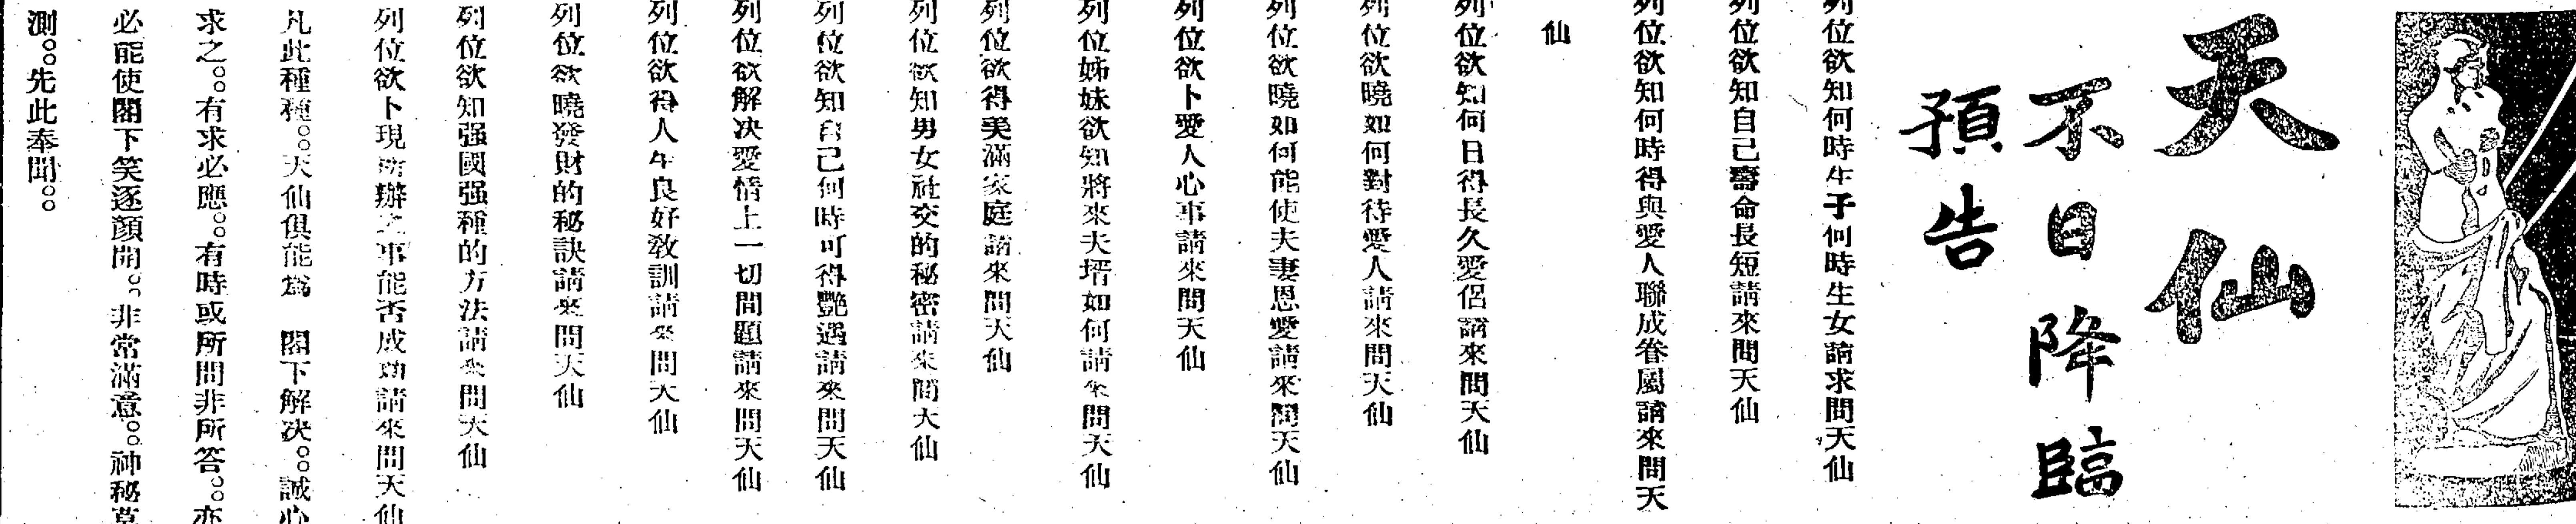 天仙
不日降臨
預告
列位欲知何時生子何時生女請求問天仙
列位欲知自己壽命長短請來問天仙
列位欲知何時得與愛人聯成眷屬請來問天
仙
列位欲知何日得長久愛侶請來問天仙
列位欲曉如何對待愛人請來問天仙
列位欲曉如何能使夫妻恩愛請來問天仙
列位姊妹欲知將來夫壻如何請來問天仙
列位欲卜愛人心事請來問天仙
列位欲得美滿家庭請來問天仙
列位欲知男女社交的秘密請來問天仙
列位欲知自己何時可得艷遇請來問天仙
列位欲解决愛情上一切問題請來問天仙
列位欲得人生良好敎訓請來問天仙
列位欲曉發財的秘訣請來問天仙
列位欲知强國强種的方法請來問天仙
列位欲卜現所辦之事能否成功請來問天仙
凡此種種。。天仙俱能爲　閣下解决。。誠心
求之。。有求必應。。有時或所問非所答。。亦
必能使閣下笑逐顏開。。非常滿意。。神秘莫
測。。先此奉聞。。